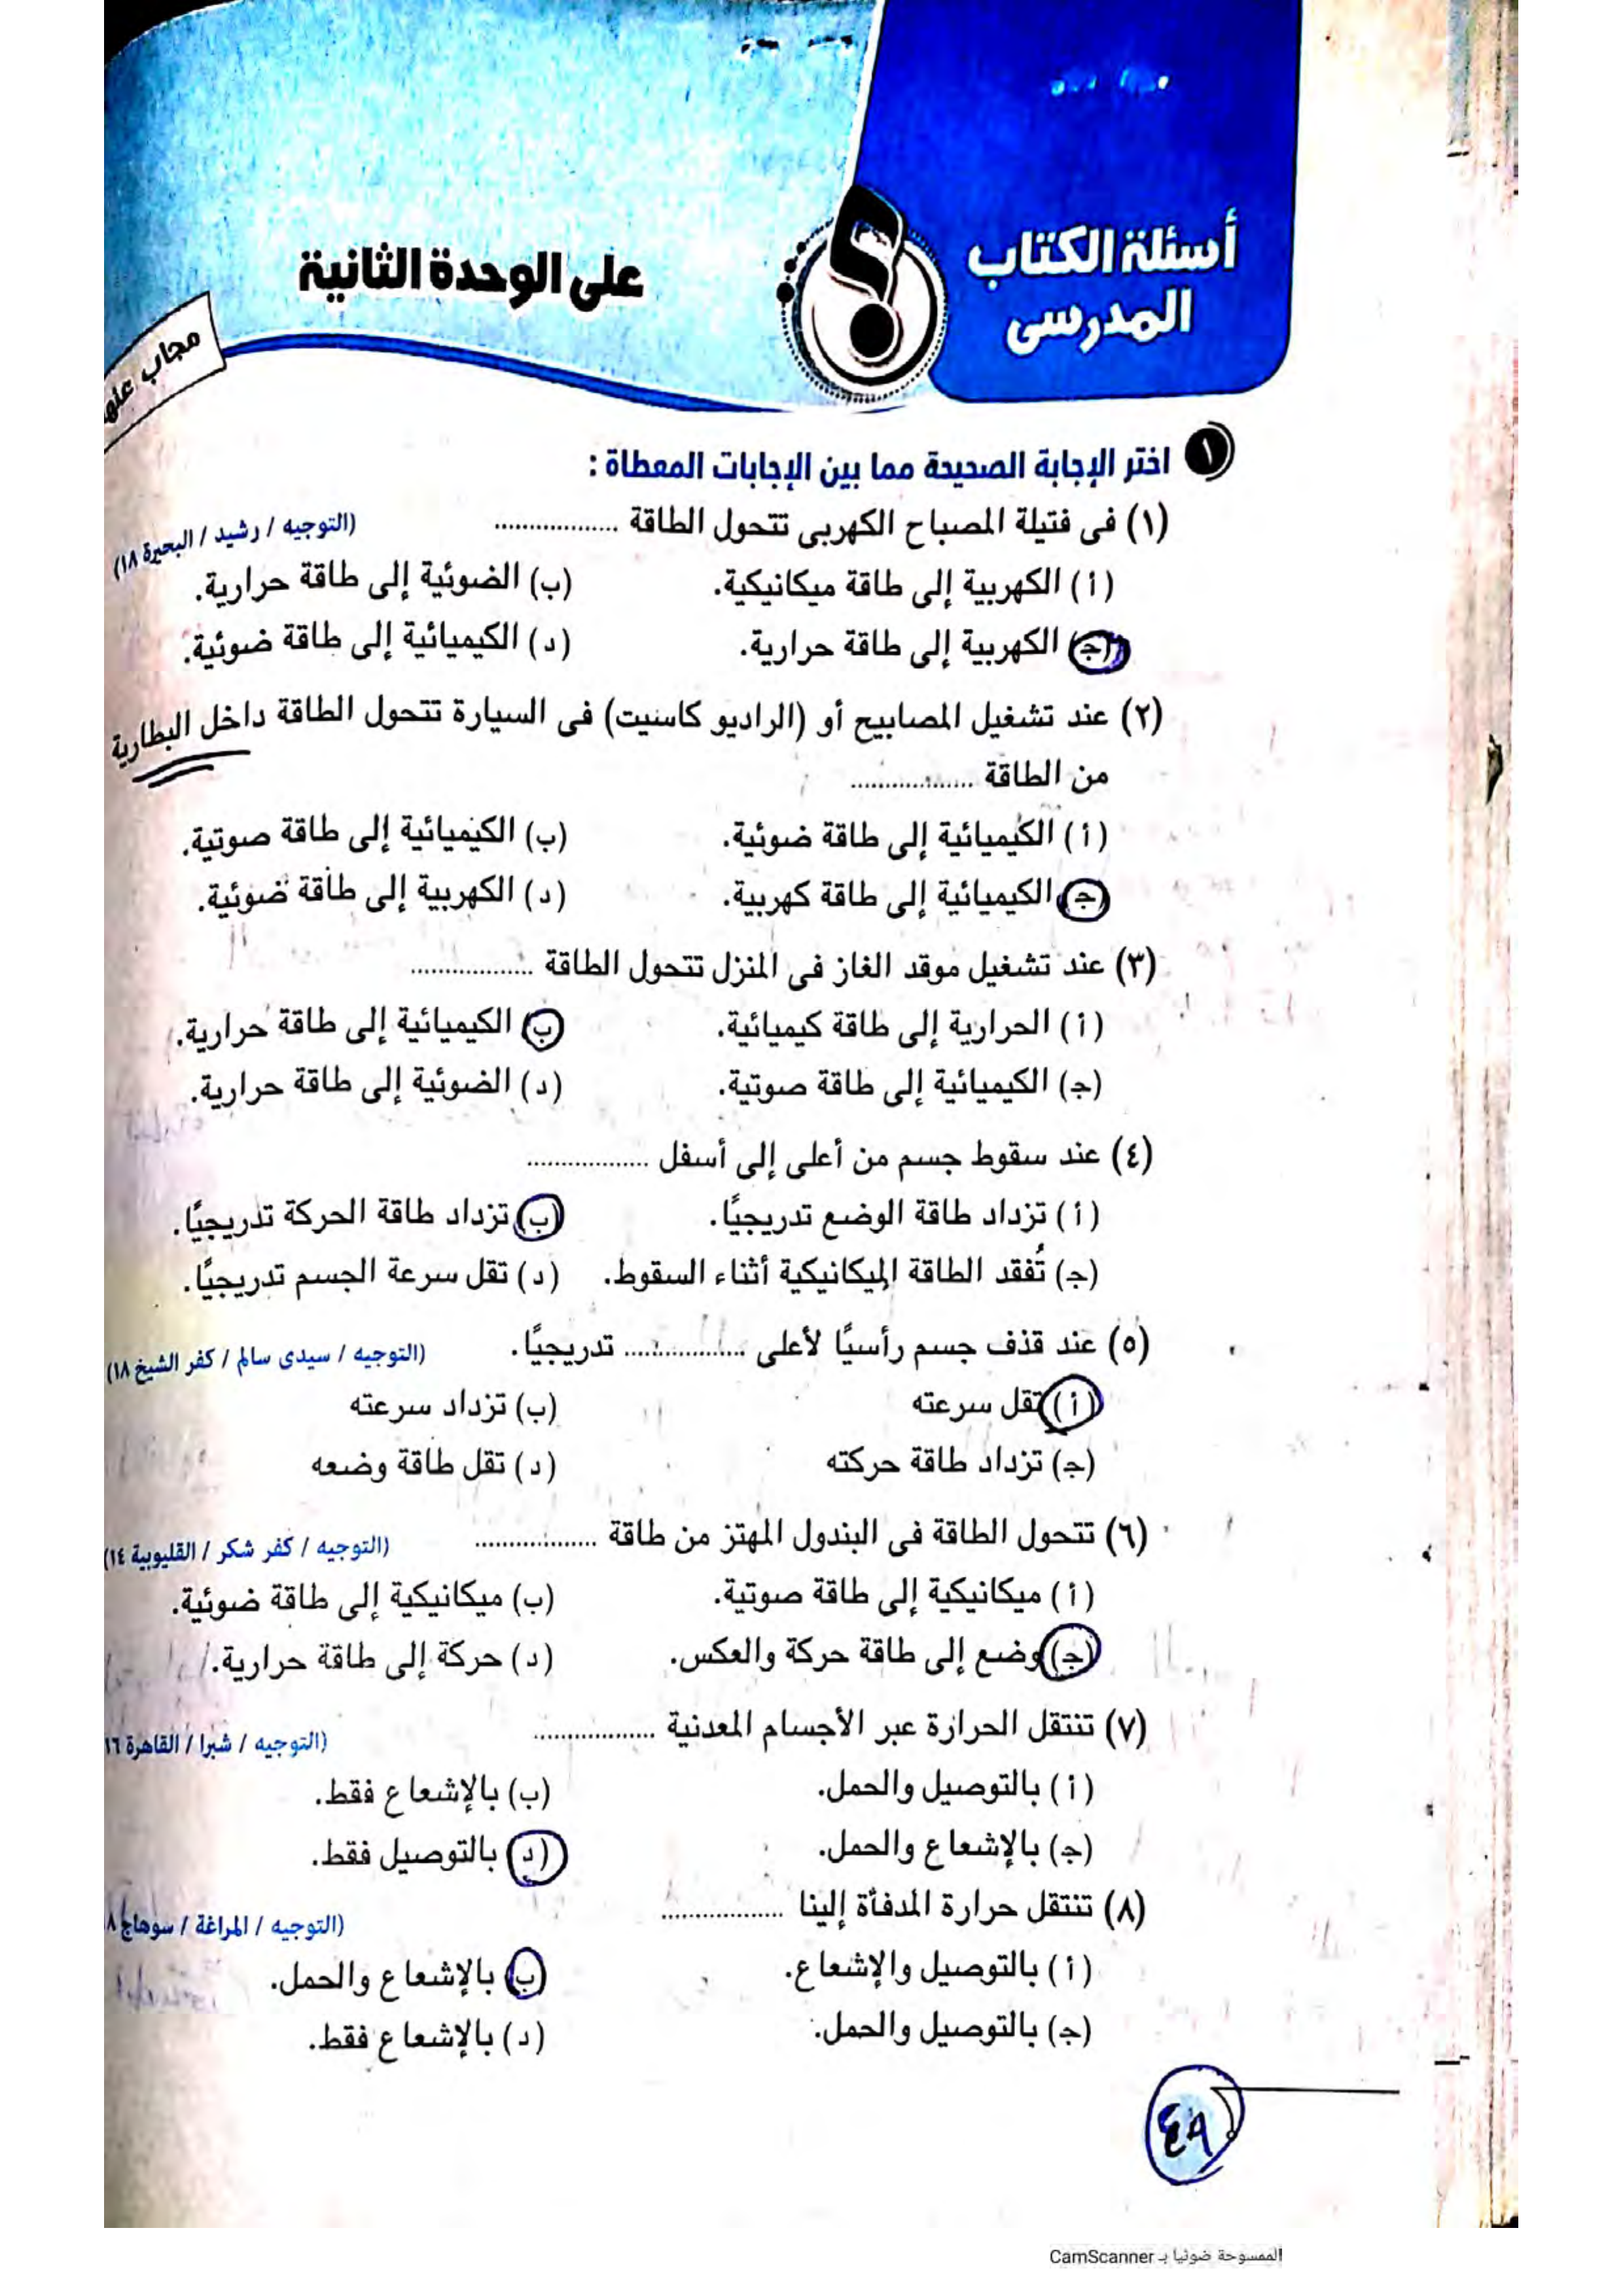 أسئلة الكتاب
المدرسى
على الوحدة الثانية
مجاب عنها
١ اختر الإجابة الصحيحة مما بين الإجابات المعطاة :
(١) فى فتيلة المصباح الكهربى تتحول الطاقة .................. (التوجيه / رشيد / البحيرة ١٨)
(أ) الكهربية إلى طاقة ميكانيكية. (ب) الضوئية إلى طاقة حرارية.
(ج) الكهربية إلى طاقة حرارية. (د) الكيميائية إلى طاقة ضوئية.
(٢) عند تشغيل المصابيح أو (الراديو كاسيت) فى السيارة تتحول الطاقة داخل البطارية
من الطاقة ..................
(أ) الكيميائية إلى طاقة ضوئية. (ب) الكيميائية إلى طاقة صوتية.
(ج) الكيميائية إلى طاقة كهربية. (د) الكهربية إلى طاقة ضوئية.
(٣) عند تشغيل موقد الغاز فى المنزل تتحول الطاقة ..................
(أ) الحرارية إلى طاقة كيميائية. (ب) الكيميائية إلى طاقة حرارية.
(ج) الكيميائية إلى طاقة صوتية. (د) الضوئية إلى طاقة حرارية.
(٤) عند سقوط جسم من أعلى إلى أسفل ..................
(أ) تزداد طاقة الوضع تدريجيًا. (ب) تزداد طاقة الحركة تدريجيًا.
(ج) تُفقد الطاقة الميكانيكية أثناء السقوط. (د) تقل سرعة الجسم تدريجيًا.
(٥) عند قذف جسم رأسيًا لأعلى .................. تدريجيًا. (التوجيه / سيدى سالم / كفر الشيخ ١٨)
(أ) تقل سرعته (ب) تزداد سرعته
(ج) تزداد طاقة حركته (د) تقل طاقة وضعه
(٦) تتحول الطاقة فى البندول المهتز من طاقة .................. (التوجيه / كفر شكر / القليوبية ١٤)
(أ) ميكانيكية إلى طاقة صوتية. (ب) ميكانيكية إلى طاقة ضوئية.
(ج) وضع إلى طاقة حركة والعكس. (د) حركة إلى طاقة حرارية.
(٧) تنتقل الحرارة عبر الأجسام المعدنية .................. (التوجيه / شبرا / القاهرة ١٦
(أ) بالتوصيل والحمل. (ب) بالإشعاع فقط.
(ج) بالإشعاع والحمل. (د) بالتوصيل فقط.
(٨) تنتقل حرارة المدفأة إلينا .................. (التوجيه / المراغة / سوهاج ٨
(أ) بالتوصيل والإشعاع. (ب) بالإشعاع والحمل.
(ج) بالتوصيل والحمل. (د) بالإشعاع فقط.
٤٨
الممسوحة ضوئيا بـ CamScanner